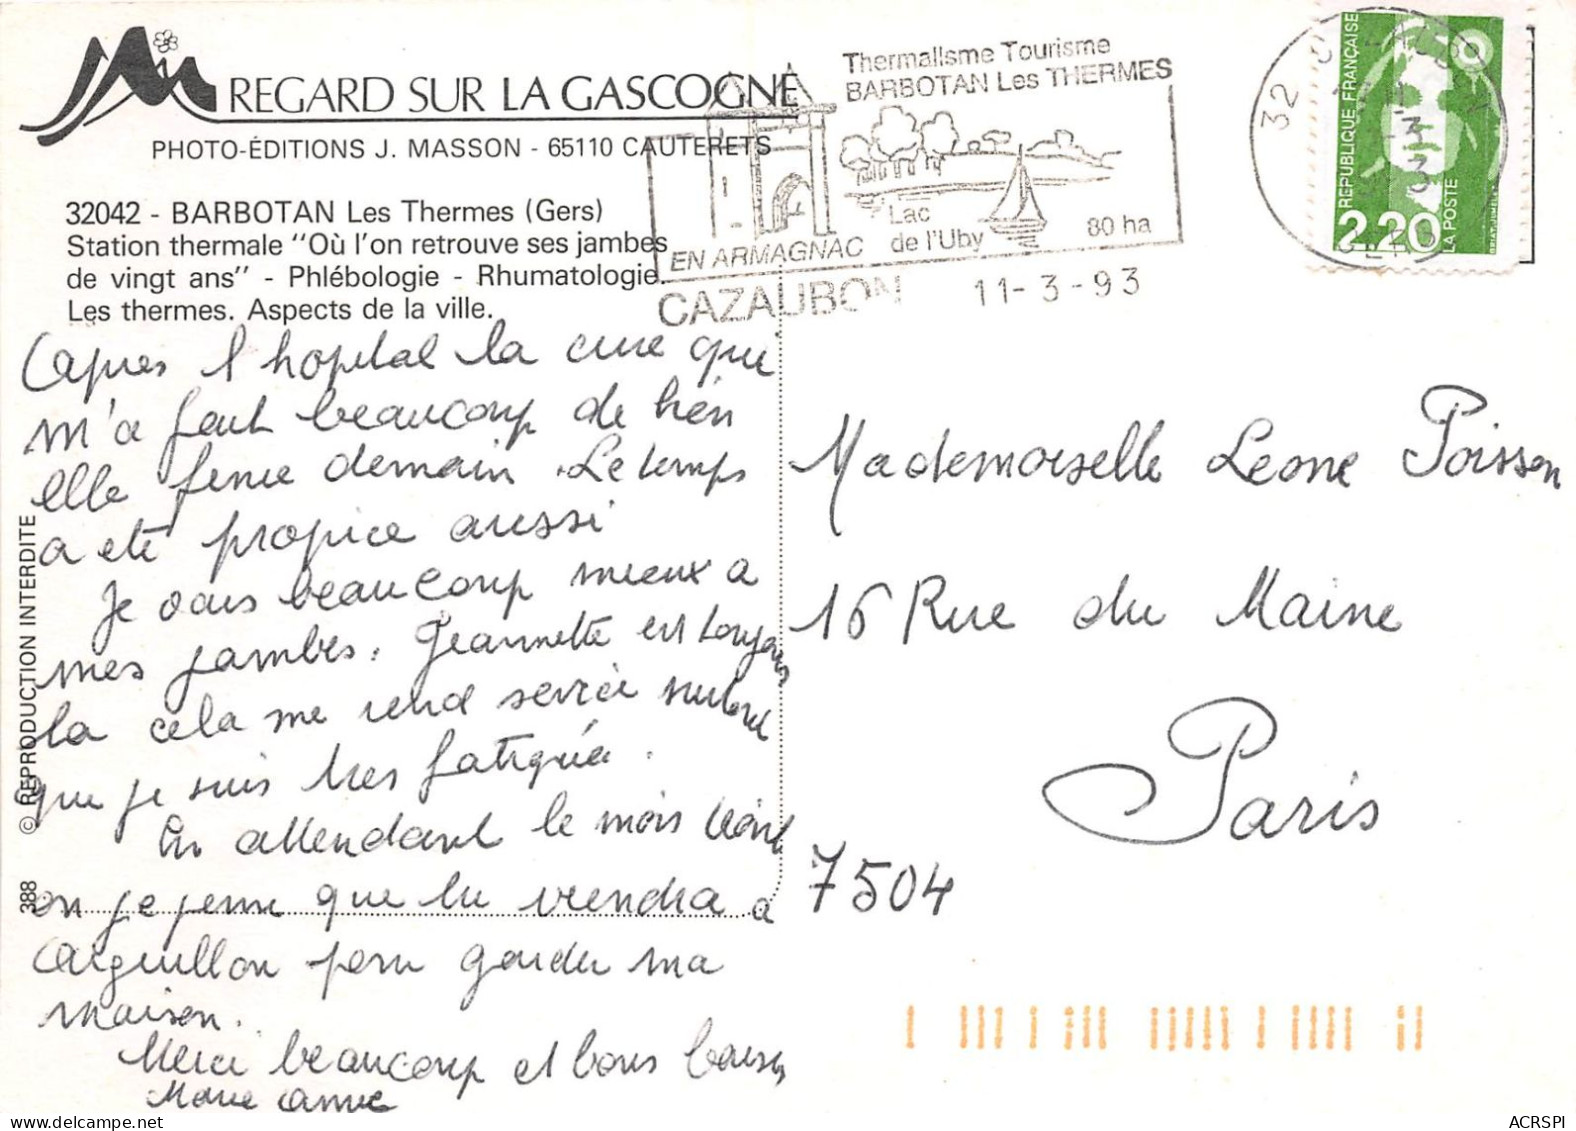 REGARD SUR LA GASCOGNE
PHOTO-ÉDITIONS J. MASSON - 65110 CAUTERETS
32042 - BARBOTAN Les Thermes (Gers)
Station thermale "Où l'on retrouve ses jambes
de vingt ans" - Phlébologie - Rhumatologie.
Les thermes. Aspects de la ville.
Thermalisme Tourisme
BARBOTAN Les THERMES
Lac
de l'Uby
80 ha
EN ARMAGNAC
CAZAUBON 11-3-93
32
RÉPUBLIQUE FRANÇAISE
2,20
LA POSTE
BRIAT-JUMELET
© REPRODUCTION INTERDITE
388
Après l'hopital la cure qui
m'a fait beaucoup de bien
elle finie demain. Le temps
a été propice aussi
Je vais beaucoup mieux a
mes jambes. Jeannette est toujours
la cela me rend service surtout
que je suis tres fatiguée.
En attendant le mois
on je pense que tu viendra à
Aiguillon pour garder ma
maison.
Merci beaucoup et bons baisers
Marie Anne
Mademoiselle Leone Poisson
16 Rue du Maine
Paris
7504
ACRSPI